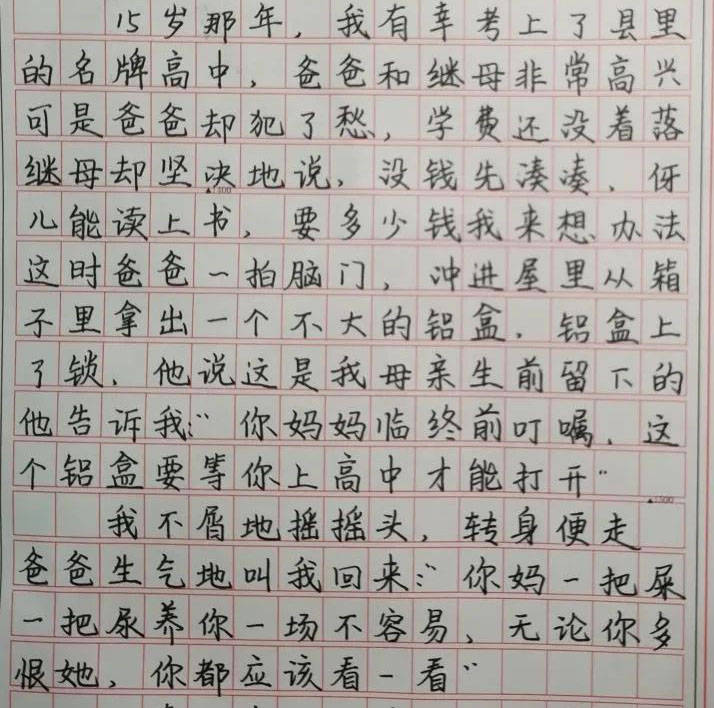 15岁那年，我有幸考上了县里
的名牌高中，爸爸和继母非常高兴
可是爸爸却犯了愁，学费还没着落
继母却坚决地说，没钱先凑凑，伢
▲1300
儿能读上书，要多少钱我来想办法
这时爸爸一拍脑门，冲进屋里从箱
子里拿出一个不大的铝盒．铝盒上
了锁．他说这是我母亲生前留下的
他告诉我：“你妈妈临终前叮嘱．这
个铝盒要等你上高中才能打开”
▲1500
我不屑地摇摇头，转身便走
爸爸生气地叫我回来：“你妈一把屎
一把尿养你一场不容易、无论你多
恨她，你都应该看一看”